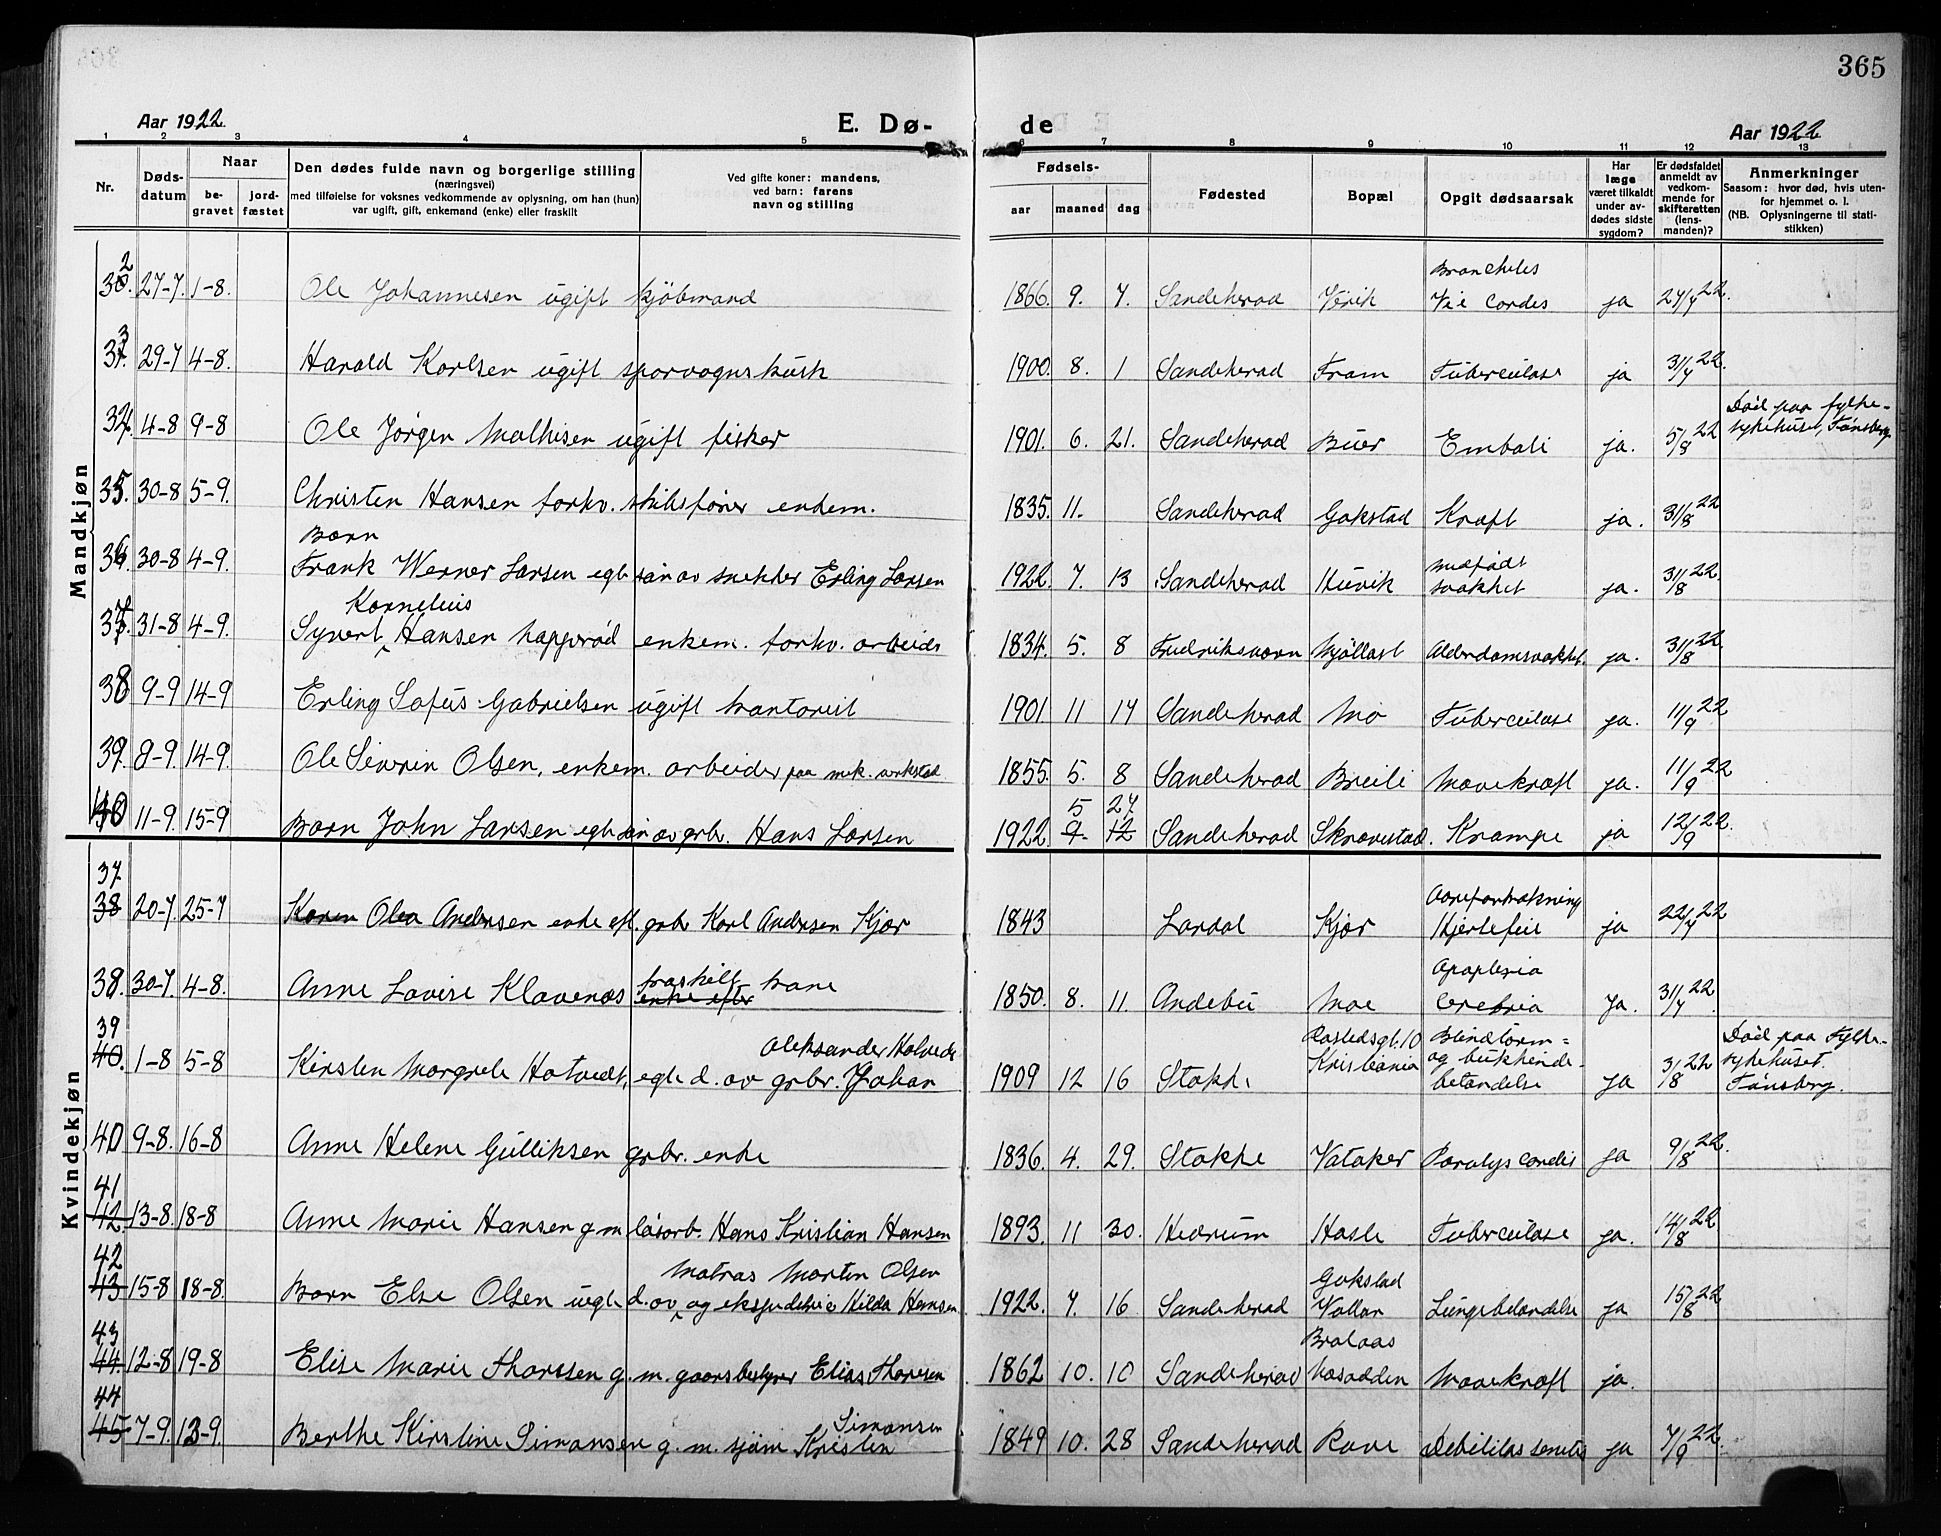 365
Aar 1922
E. Dø-
de
Aar 1922
1 2 3 4 5 6 7 8 9 10 11 12 13
Nr.
Døds-
datum
Naar
be-
gravet
jord-
fæstet
Den dødes fulde navn og borgerlige stilling
(næringsvei)
med tilføielse for voksnes vedkommende av oplysning, om han (hun)
var ugift, gift, enkemand (enke) eller fraskilt
Ved gifte koner: mandens,
ved barn: farens
navn og stilling
Fødsels-
aar
maaned
dag
Fødested
Bopæl
Opgit dødsaarsak
Har
læge
været tilkaldt
under av-
dødes sidste
sygdom?
Er dødsfaldet
anmeldt av
vedkom-
mende for
skifteretten
(lens-
manden)?
Anmerkninger
Saasom: hvor død, hvis uten-
for hjemmet o. l.
(NB. Oplysningerne til stati-
stikken)
Mandkjøn
32. 27-7. 1-8. Ole Johannesen ugift kjøbmand 1866. 9. 7. Sandeherad Vérik Bronchites Vi i Cordes ja 27/7 22.
33. 29-7 4-8. Harald Karlsen ugift sporvognskusk 1900. 8. 1 Sandeherad Fram Tuberculose ja 31/7 22.
34. 4-8 9-8 Ole Jørgen Mathisen ugift fisker 1901. 6. 21. Sandeherad Buer Emboli ja. 5/8 22 Død paa fylke-
sykehuset, Tønsberg
35. 30-8 5-9. Christen Hansen forhv. skibsfører enkem. 1835. 11. Sandeherad Gokstad Kræft ja. 31/8 22
Barn
36. 30-8 4-9. Frank Werner Larsen egte søn av snekker Erling Larsen 1922. 7. 13 Sandeherad Huvik medfødt svakhet ja. 31/8 22.
Kornelius
37. 31-8 4-9. Syvert Hansen Napperød enkem. forhv. arbeider 1834. 5. 8 Fredriksværn Mjøllost Alderdomssvakhet. ja. 31/8 22.
38 9-9 14-9 Erling Sofus Gabrielsen ugift kontorist 1901 11 14 Sandeherad Mo Tuberculose ja. 11/9 22
39. 8-9. 14-9. Ole Severin Olsen, enkem. arbeider paa mek. verksted 1855. 5. 8 Sandeherad Breili Mavekræft ja. 11/9 22
5 27
40 11-9. 15-9 Barn John Larsen egte søn av grbr. Hans Larsen 1922. 9. 12 Sandeherad Skravestad. Krampe ja 12/9 22.
Kvindekjøn
37
38 20-7 25-7 Karen Olea Andersen enke eft. grbr Karl Andersen Kjær 1843 Lardal Kjær Aareforkalkning Hjertefeil ja 22/7 22
38. 30-7. 4-8. Anne Lovise Klavenæs fraskilt enke efter kone 1850. 8. 11. Andebu Moe Apoplexia Cerebria Ja. 31/7 22.
39
Aleksander Hotvedt
40. 1-8 5-8 Kirsten Margrete Hotvedt, egte d. av grbr. Johan 1909 12 16 Stokke Rostedsgt. 10 Kristiania Blindtarm- og bukhinde- betændelse ja 3/8 22 Død paa Fylke-
sykehuset.
Tønsberg.
40 9-8. 16-8 Anne Helene Gulliksen grbr. enke 1836. 4. 29. Stokke Vataker Paralys cordis ja 9/8 22.
41
42 13-8. 18-8 Anne Marie Hansen g. m. løsarb. Hans Kristian Hansen 1893. 11 30. Hedrum Hasle Tuberculose ja. 14/8 22
42
Matros Morten Olsen
43 15-8 18-8. Barn Else Olsen uegte d. av og ekspeditrice Hilda Hansen 1922. 7. 16 Sandeherad Gokstad Vollan Lungebetændelse ja 15/8 22
43
44. 12-8 19-8 Elise Marie Thoresen g. m. gaarsbestyrer Elias Thoresen 1862 10. 10 Sandeherad Bralaas Mavekræft ja.
44
Simonsen
45 7-9. 13-9. Berthe Kirstine Simonsen g. m. sjøm Kristen 1849 10. 28 Sandeherad Rove Debilitas senilis ja 7/9 22.